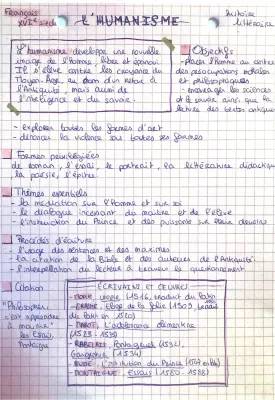 Français
XVIe siècle
L'HUMANISME
histoire
littéraire
L'humanisme développe une nouvelle
image de l'Homme, libre et épanoui.
Il s'élève contre les croyances du
Moyen-Âge au nom d'un retour à
l'Antiquité, mais aussi de
l'intelligence et du savoir.
Objectifs
- placer l'Homme au centre
des préoccupations morales
et philosophiques
- encourager les sciences
et le savoir ainsi que la
lecture des textes antiques
- explorer toutes les formes d'art
- dénoncer la violence sous toutes ses formes
Formes privilégiées
de roman, l'essai, le portrait, la littérature didactique,
la poésie, l'épître.
Thèmes essentiels
- la méditation sur l'Homme et sur soi
- le dialogue incessant du maître et de l'élève
- l'instruction du Prince et des puissants sur leurs devoirs
Procédés d'écriture
- l'usage des sentences et des maximes
- la citation de la Bible et des auteurs de l'Antiquité
- l'interpellation du lecteur à travers le questionnement
Citation
"Philosopher,
c'est apprendre
à mourir"
les Essais,
Montaigne
ÉCRIVAINS ET OEUVRES
- MORE, Utopie (1516, traduit du latin
- ERASME, Eloge de la folie (1509, traduit
du latin en 1520)
- MAROT, L'adolescence clémentine
(1532
- RABELAIS, Pantagruel (1532),
Gargantua (1534)
- BUDÉ, L'institution du Prince (1547 en
- MONTAIGNE, Essais (1580 - 1588)